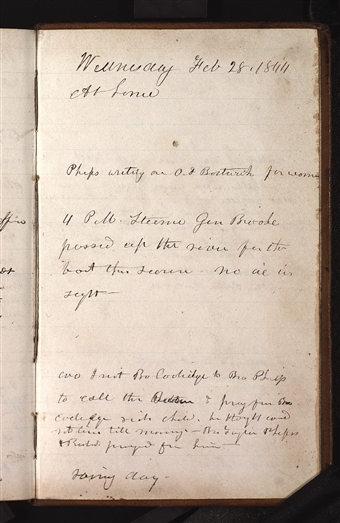 Wednesday Feb 28. 1844
At home
Phelps writing on O. F. Bostwick for
4 P.M. Steemer Gen Brooke
passed up the river fer the
boat this seeson no ice in
sight
Br Coolidge to Bro Phelps
to call the & pray for Bro
coolidge sick child. he thought could
not live till morning - Bro Taylor Phelps
& prayed for him
rainy day.